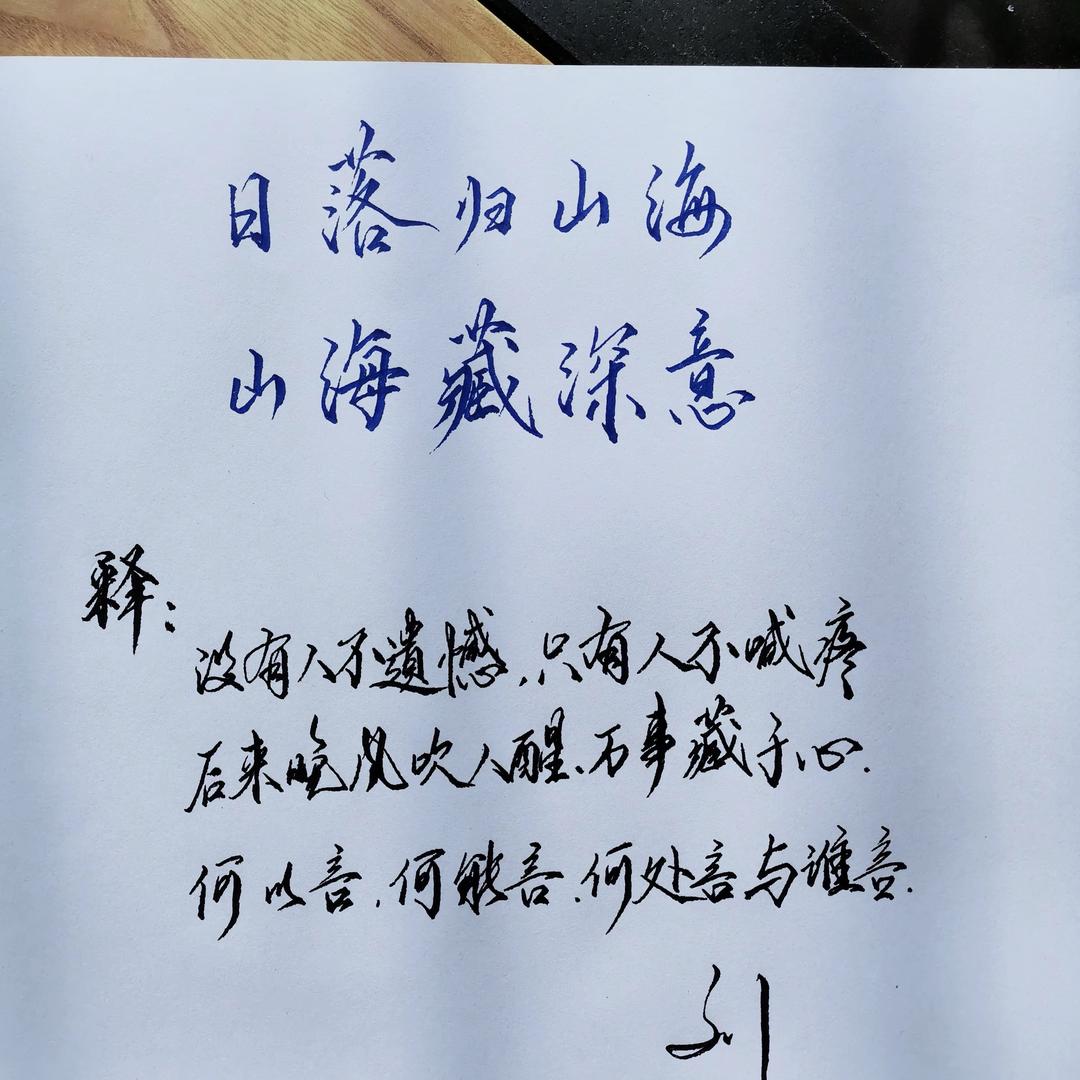 日落归山海
山海藏深意
释:
没有人不遗憾,只有人不喊疼
后来晚风吹人醒、万事藏于心.
何以言,何能言,何处言与谁言.
刘